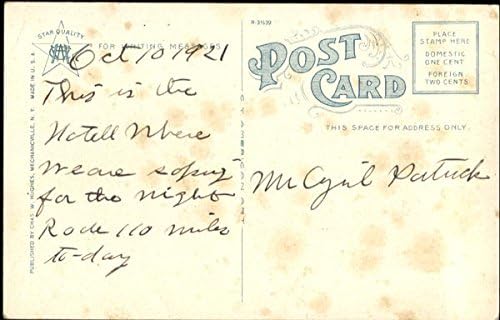 STAR QUALITY
FOR WRITING MESSAGES
R-31539
POST CARD
PLACE
STAMP HERE
DOMESTIC
ONE CENT
FOREIGN
TWO CENTS
THIS SPACE FOR ADDRESS ONLY.
MADE IN U.S.A.
PUBLISHED BY CHAS. W. HUGHES, MECHANICVILLE, N. Y.
Oct 10 1921
This is the
Hotell Where
We are
for the night
Rode 110 miles
to-day
Mr Cyril Patrick